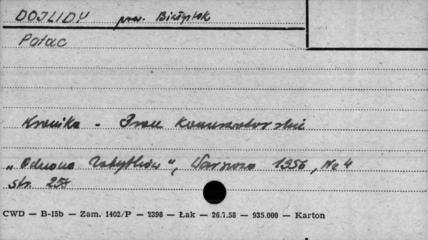 DOJLIDY pow. Białystok
Pałac
Kronika - Prace konserwatorskie
„Ochrona Zabytków", Warszawa 1956, No 4
str. 258
CWD — B-15b — Zam. 1402/P — 2398 — Łak — 26.7.58 — 935.000 — Karton